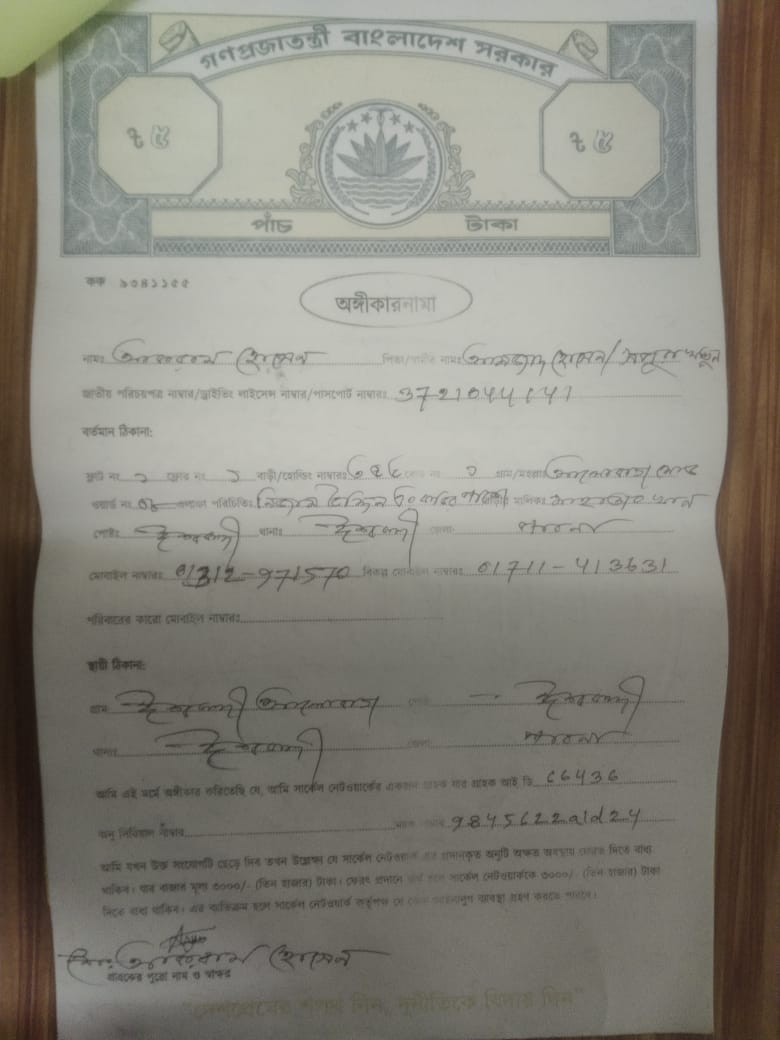 গণপ্রজাতন্ত্রী বাংলাদেশ সরকার
৳ ৫ ৳ ৫
পাঁচ টাকা
কক ৯০৪১১৫৫
অঙ্গীকারনামা
নামঃ হোসেন পিতা/স্বামীর নামঃ হোসেন/
জাতীয় পরিচয়পত্র নাম্বার/ড্রাইভিং লাইসেন্স নাম্বার/পাসপোর্ট নাম্বারঃ
বর্তমান ঠিকানা:
ফ্ল্যাট নং ২ ফ্লোর নং ১ বাড়ী/হোল্ডিং নাম্বারঃ রোড নং ১ গ্রাম/মহল্লাঃ
ওয়ার্ড নং এলাকা পরিচিতিঃ
পোষ্টঃ ঈশ্বরদী থানাঃ ঈশ্বরদী জেলাঃ পাবনা
মোবাইল নাম্বারঃ 01312-971570 বিকল্প মোবাইল নাম্বারঃ 01711-413631
পরিবারের কারো মোবাইল নাম্বারঃ
স্থায়ী ঠিকানা:
গ্রামঃ ঈশ্বরদী ঈশ্বরদী
থানাঃ ঈশ্বরদী জেলাঃ পাবনা
আমি এই মর্মে অঙ্গীকার করিতেছি যে, আমি সার্কেল নেটওয়ার্কের একজন গ্রাহক যার গ্রাহক আই ডি 66436
অনু সিরিয়াল নাম্বার 9845622a1d24
আমি যখন উক্ত সংযোগটি ছেড়ে দিব তখন উল্লেখ্য যে সার্কেল নেটওয়ার্ক এর প্রদানকৃত অনুটি অক্ষত অবস্থায় ফেরত দিতে বাধ্য
থাকিব। যার বাজার মূল্য ৩০০০/- (তিন হাজার) টাকা। ফেরৎ প্রদানে ব্যর্থ হলে সার্কেল নেটওয়ার্ককে ৩০০০/- (তিন হাজার) টাকা
দিতে বাধ্য থাকিব। এর ব্যতিক্রম হলে সার্কেল নেটওয়ার্ক কর্তৃপক্ষ যে কোন আইনানুগ ব্যবস্থা গ্রহণ করতে পারবে।
মোঃ হোসেন
গ্রাহকের পুরো নাম ও স্বাক্ষর
"দেশপ্রেমের শপথ নিন, দুর্নীতিকে বিদায় দিন"